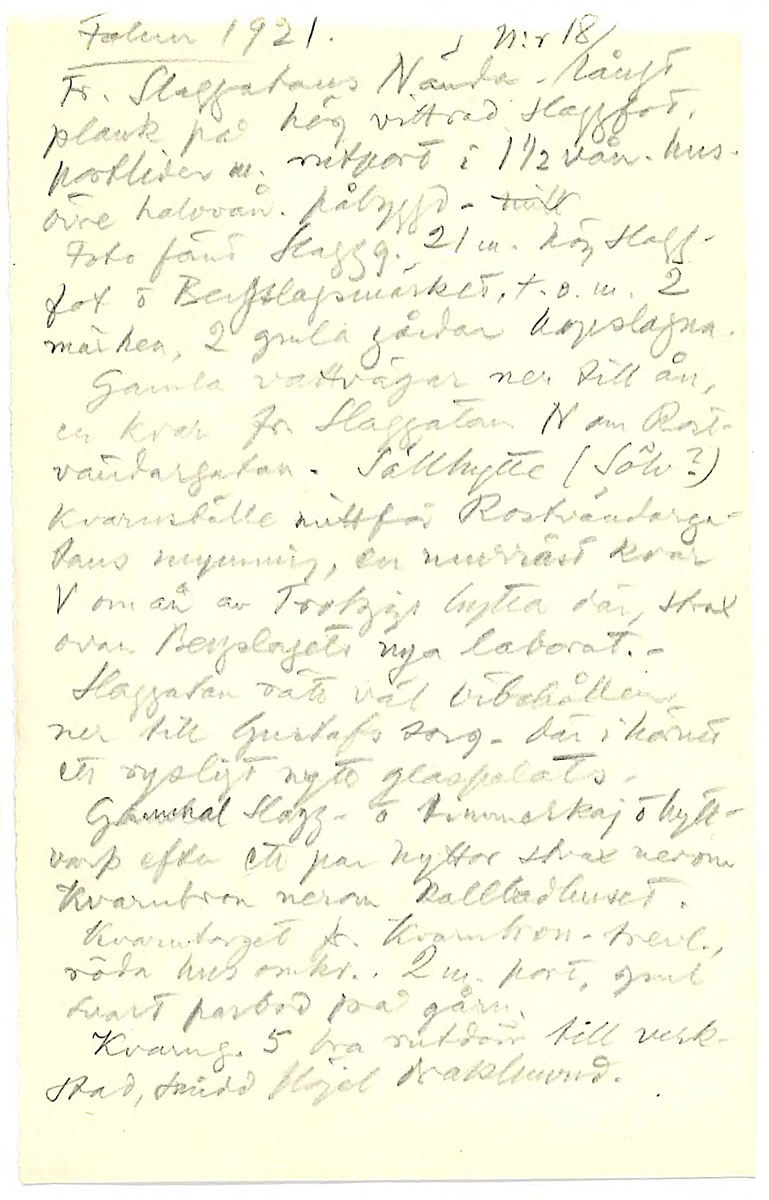 Falun 1921. N:r 18/
Fr. Slaggatans N ända - långt
plank på hög vittrad slaggfot.
portlider m. rutport i 1 1/2 vån. hus.
övre halvvån. påbyggd -
Foto Slaggg. 21 m. hög slagg-
fot o Bergslagsmärket, t.o.m. 2
märken, 2 gamla gårdar hopslagna.
Gamla vattvägar ner till ån,
en kvar fr. Slaggatan N om Rost-
vändargatan. Sällhytte (Sölv?)
kvarnställe mittför Rostvändarga-
tans mynning, en murräst kvar
V om ån av Trotzigs hytta där, strax
ovan Bergslagets nya laborat. -
Slaggatan rätt väl bibehållen
ner till Gustafs torg - där i hörnet
ett rysligt nytt glaspalats -
Gammal slagg- o timmerkaj o hytt-
varp efter ett par hyttor strax nerom
Kvarnbron nerom Kallbadhuset.
Kvarntorget fr. Kvarnbron - trevl.,
röda hus omkr.. 2 m. port, gml
svart parbod på gårn.
Kvarng. 5 bra rutdörr till verk-
stad, smidd